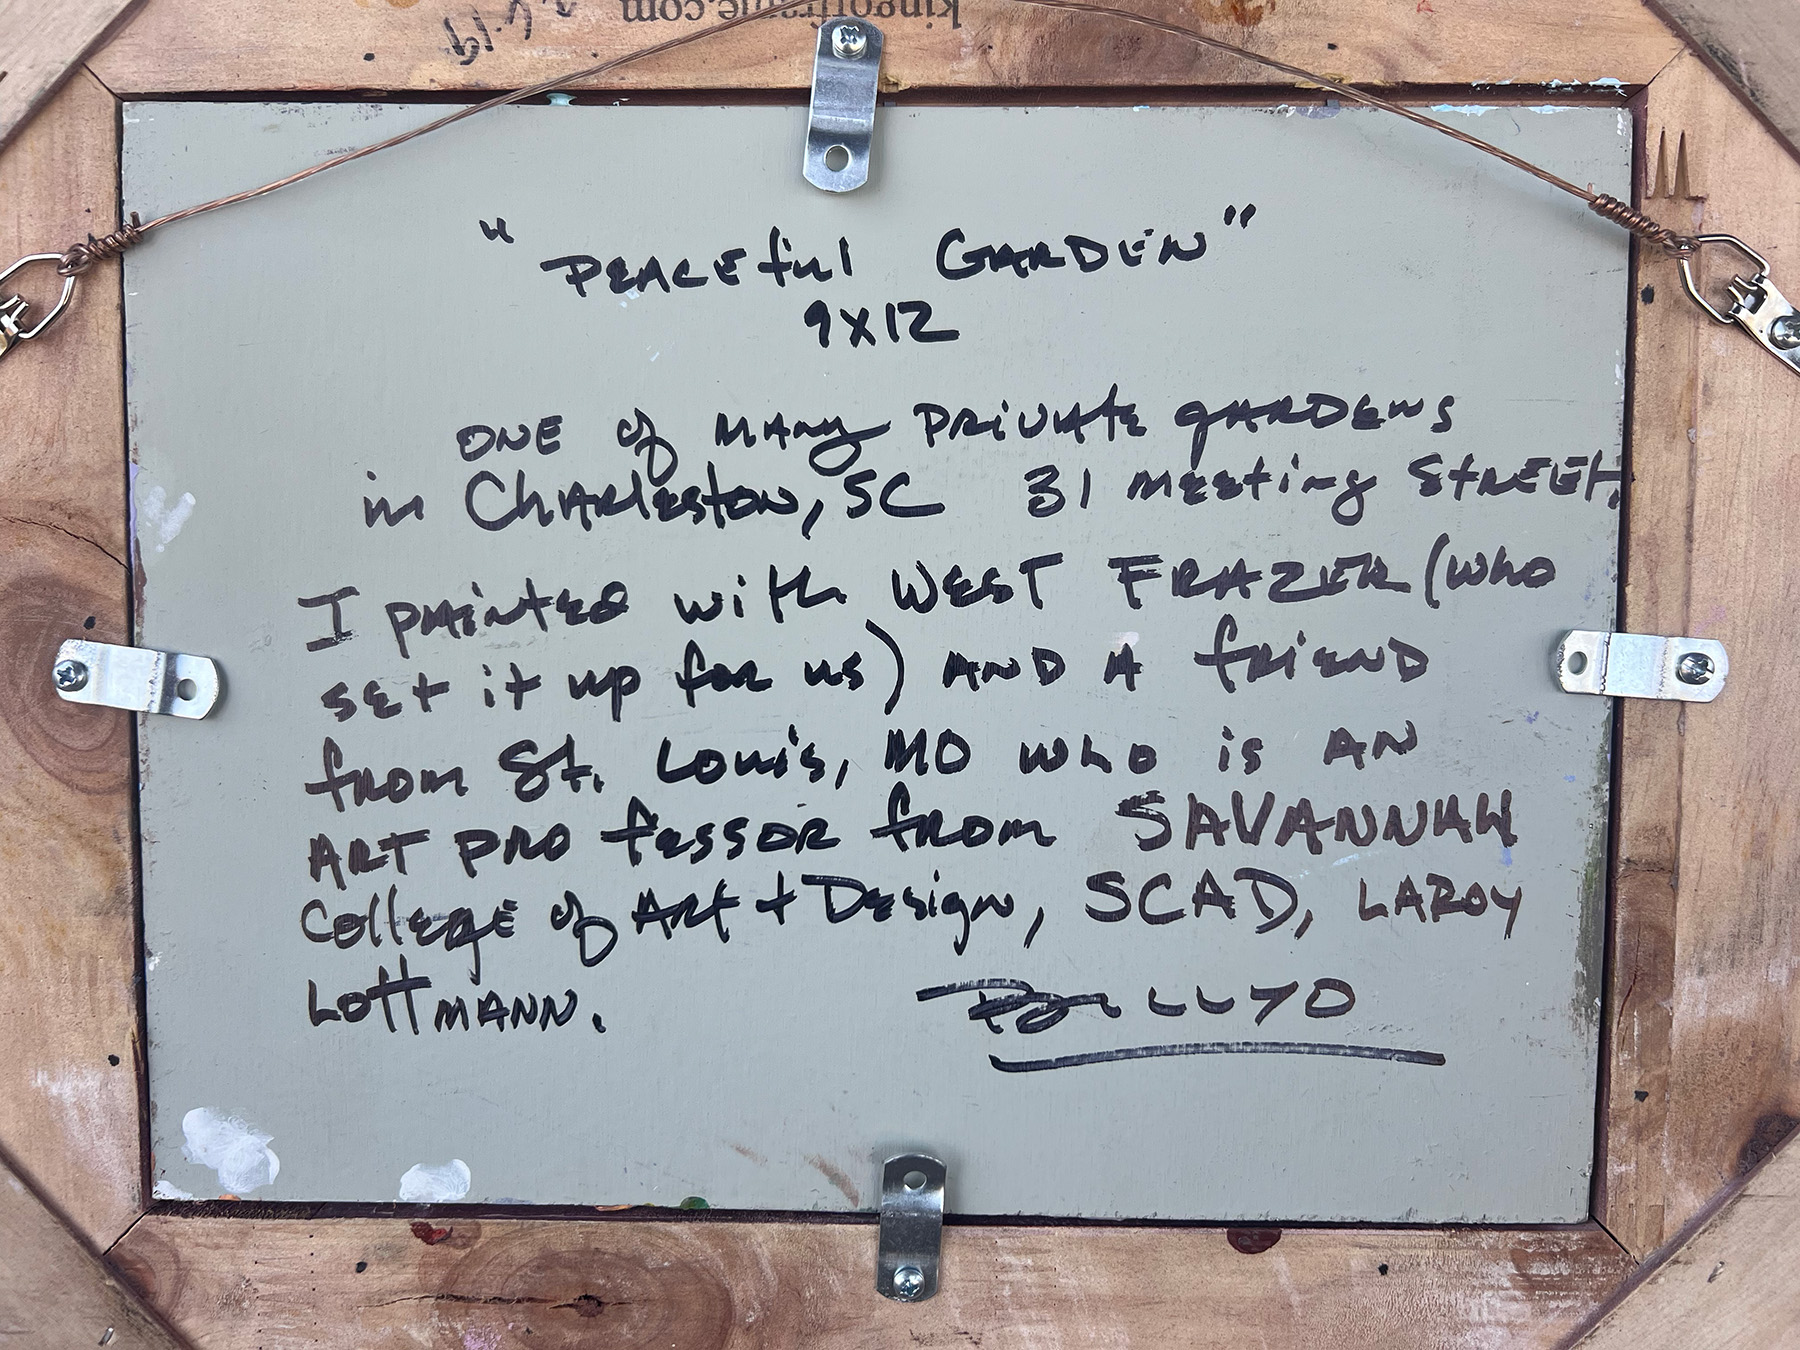 kingofframe.com
"PEACEful GARDEN"
9X12
ONE of MANy PRiVAtE gARDENS
in ChARlEston, SC 31 MEEting StREEt.
I pAintED with WEST FRAZER (who
sEt it up foR us) AND A fRiEND
fRom St. Louis, MO who is AN
ART PROfEssoR fRom SAVANNAH
CollEgE of ARt + DEsign, SCAD, LAROy
LottMANN.